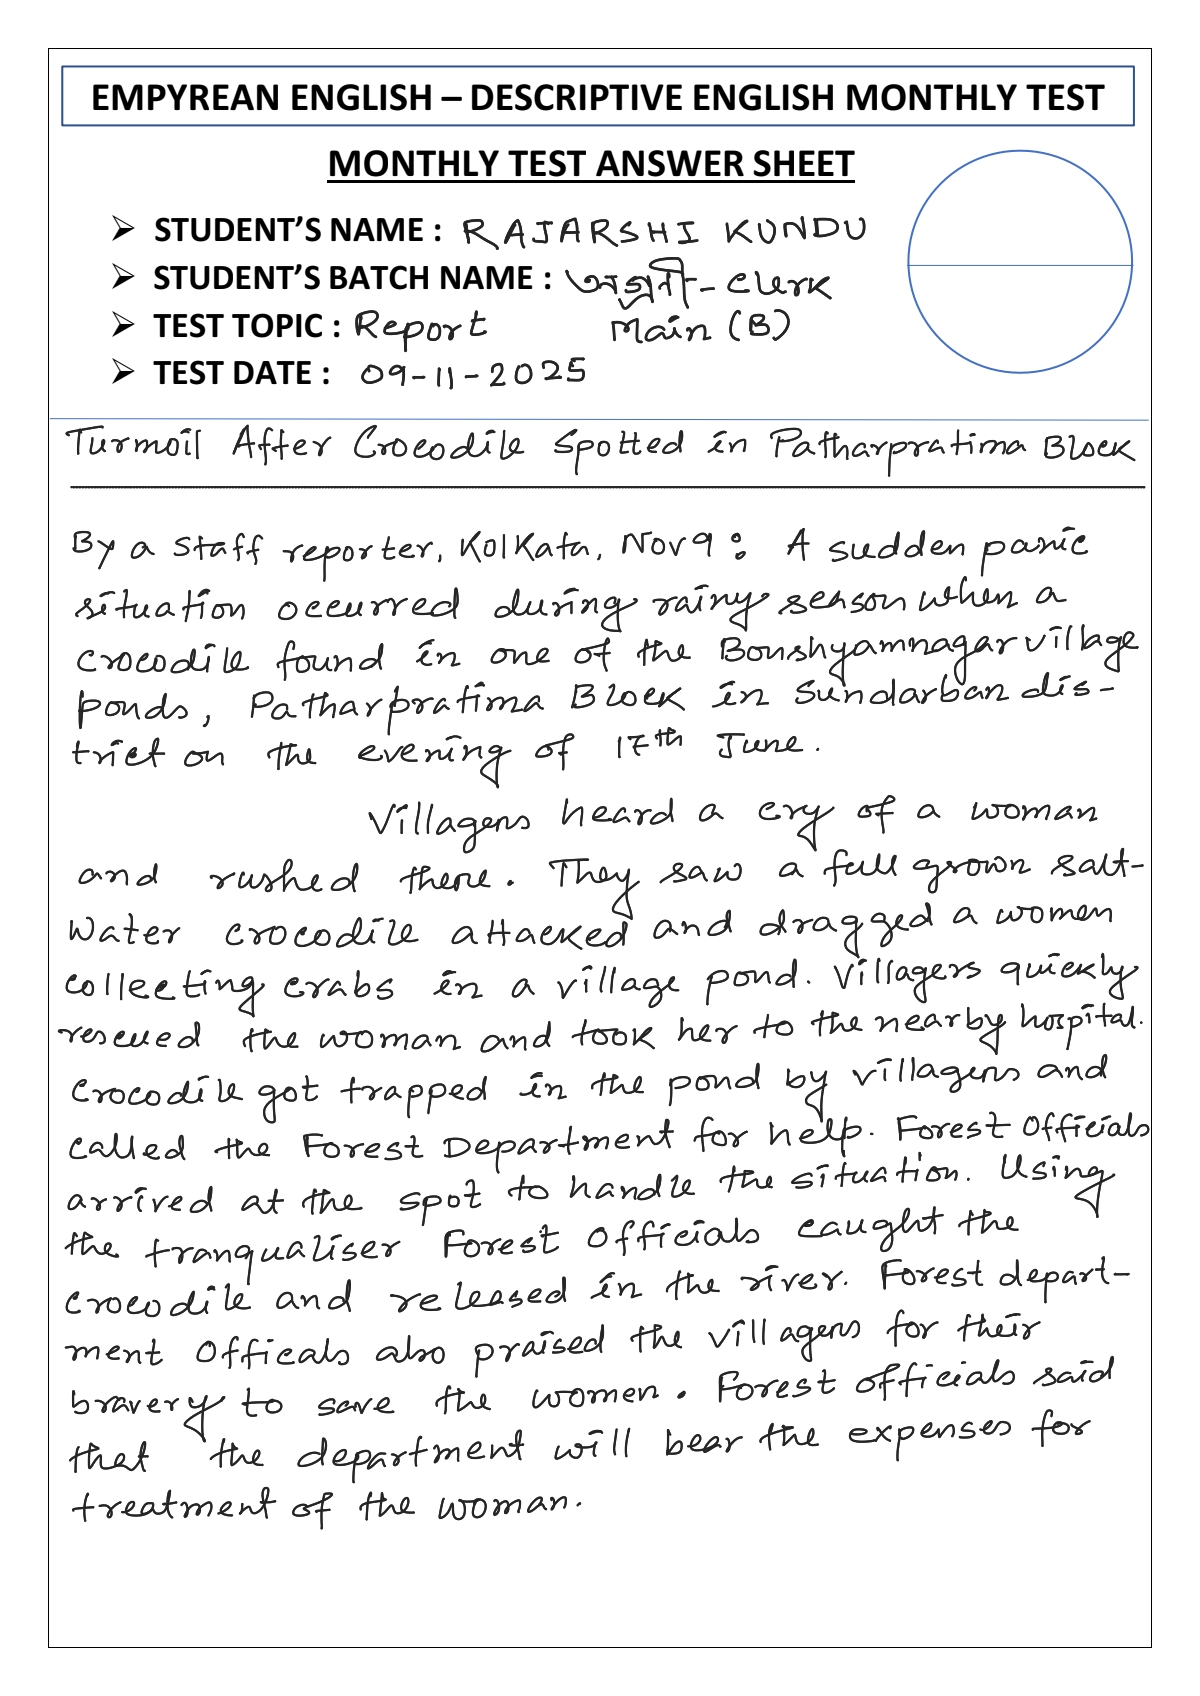 EMPYREAN ENGLISH – DESCRIPTIVE ENGLISH MONTHLY TEST
MONTHLY TEST ANSWER SHEET
➢ STUDENT'S NAME : RAJARSHI KUNDU
➢ STUDENT'S BATCH NAME : অগ্রণী - Clerk
➢ TEST TOPIC : Report Main (B)
➢ TEST DATE : 09-11-2025
Turmoil After Crocodile Spotted in Patharpratima Block
By a staff reporter, Kolkata, Nov 9: A sudden panic
situation occurred during rainy season when a
crocodile found in one of the Bonshyamnagar village
ponds, Patharpratima Block in Sundarban dis-
trict on the evening of 17th June.
Villagers heard a cry of a woman
and rushed there. They saw a full grown salt-
water crocodile attacked and dragged a women
collecting crabs in a village pond. Villagers quickly
rescued the woman and took her to the nearby hospital.
Crocodile got trapped in the pond by villagers and
called the Forest Department for help. Forest Officials
arrived at the spot to handle the situation. Using
the tranqualiser Forest Officials caught the
crocodile and released in the river. Forest depart-
ment Officals also praised the villagers for their
bravery to save the women. Forest officials said
that the department will bear the expenses for
treatment of the woman.